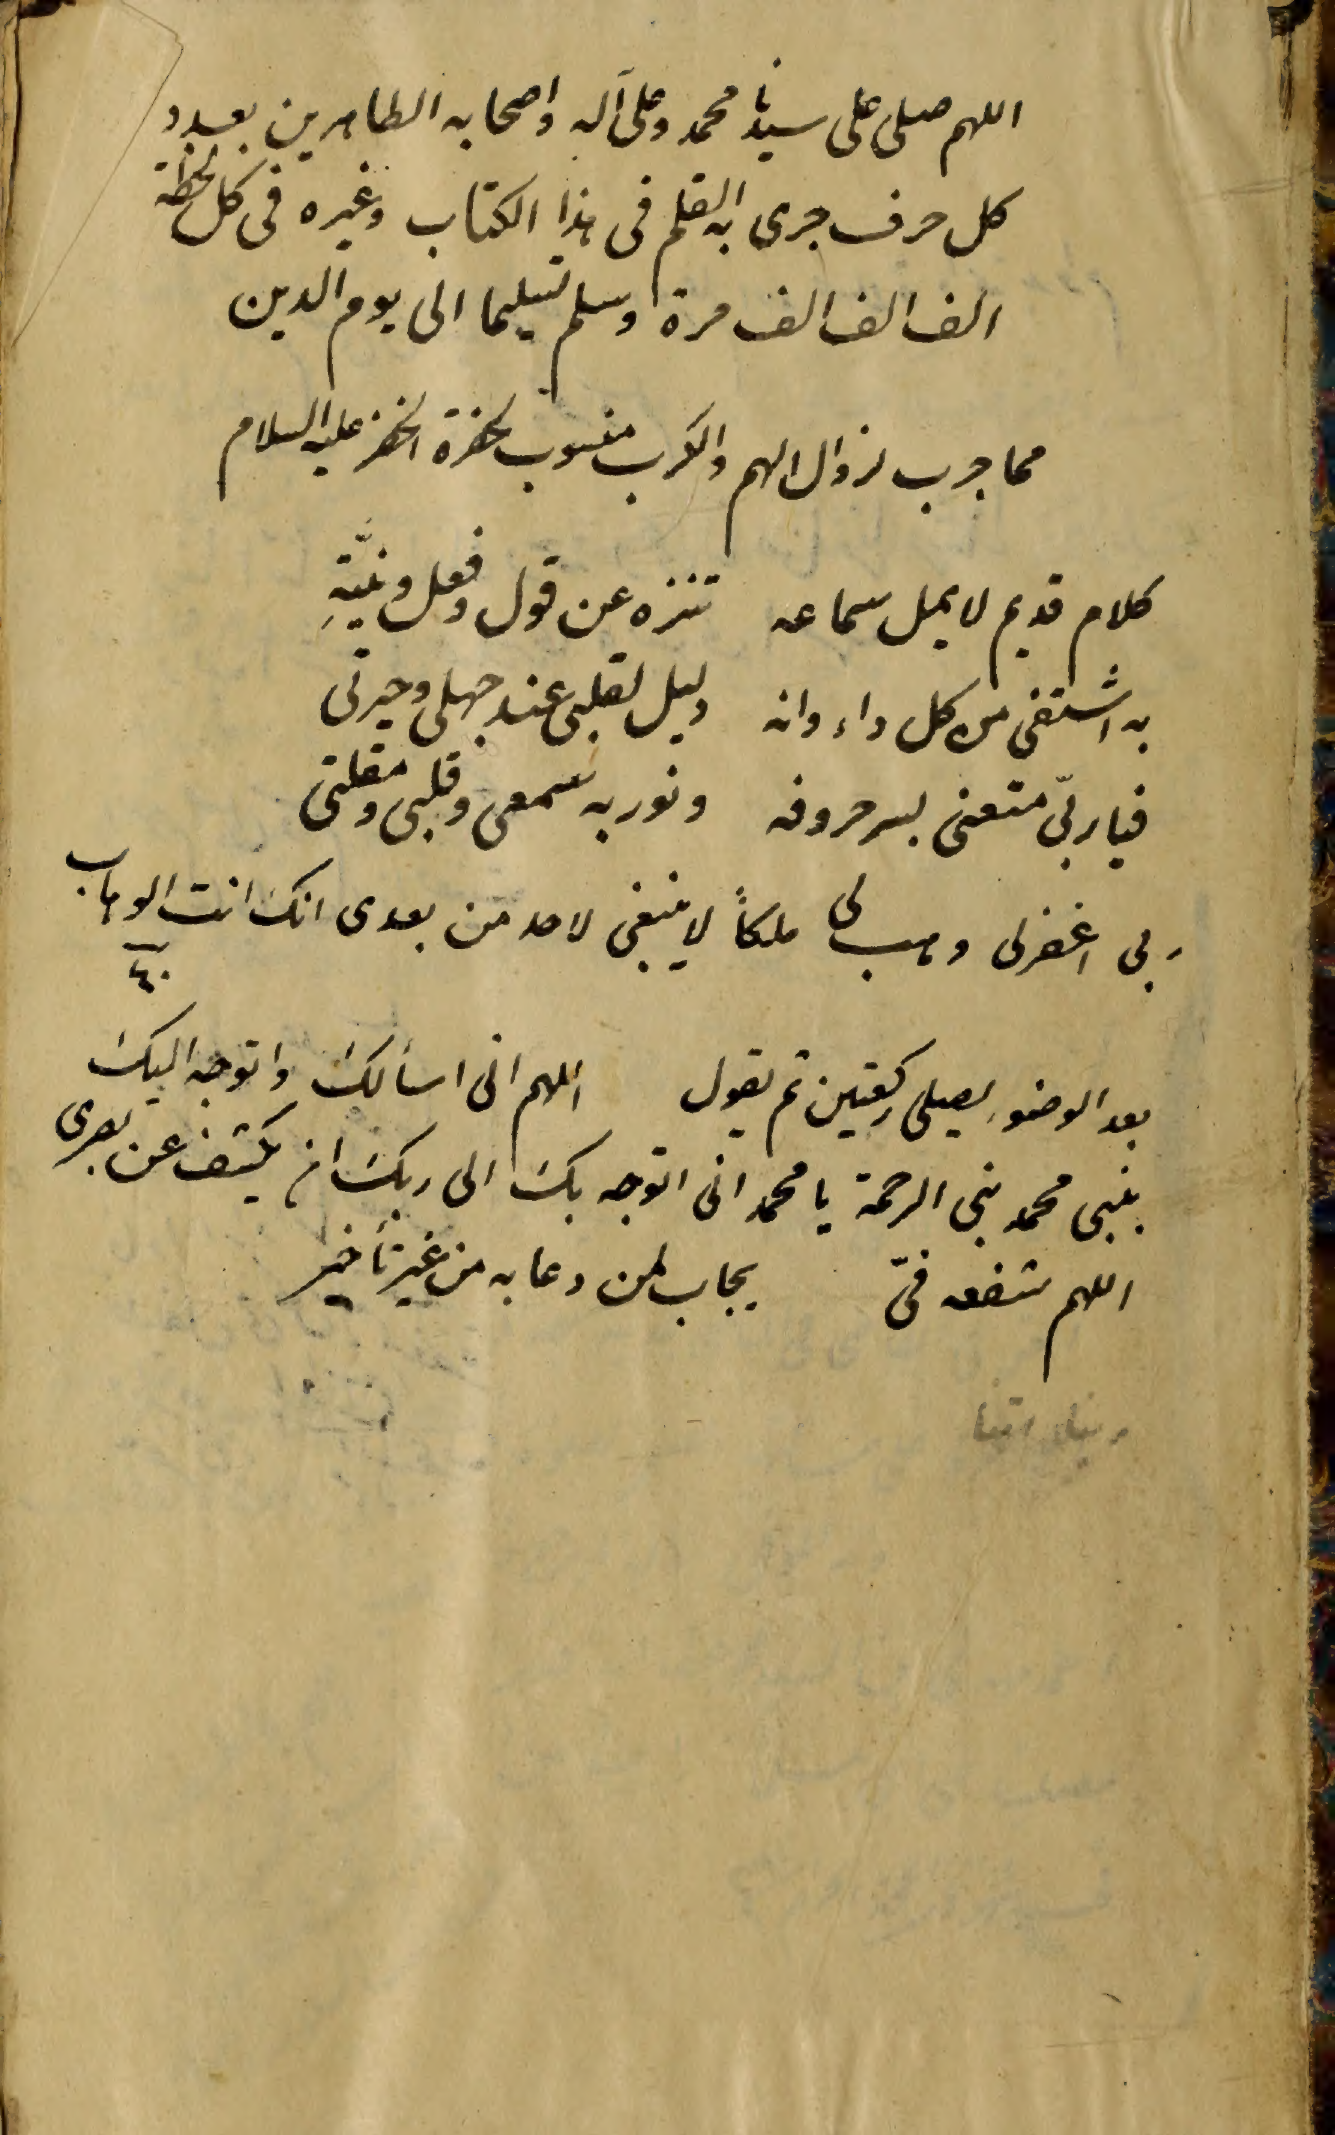 اللهم صلى على سيدنا محمد وعلى آله واصحابه الطاهرين بعدد
كل حرف جرى به القلم فى هذا الكتاب وغيره فى كل لحظة
الف الف الف مرة وسلم تسليما الى يوم الدين
مما جرب لزوال الهم والكرب منسوب لحضرة الخضر عليه السلام
كلام قديم لا يمل سماعه تنزه عن قول وفعل ونيَّةِ
به اشتفى من كل داء وانه دليل لقلبى عند جهلى وحيرتى
فيا ربّى متعنى بسر حروفه ونور به سمعى وقلبى ومقلتى
ربى اغفرلى وهب لى ملكاً لا ينبغى لاحد من بعدى انك انت الوهاب
٤٠
بعد الوضوء يصلى ركعتين ثم يقول اللهم انى اسألك واتوجه اليك
بنبى محمد نبى الرحمة يا محمد انى اتوجه بك الى ربك ان يكشف عن بصرى
اللهم شفعه فىّ يجاب لمن دعا به من غير تأخير
ربنا اتنا